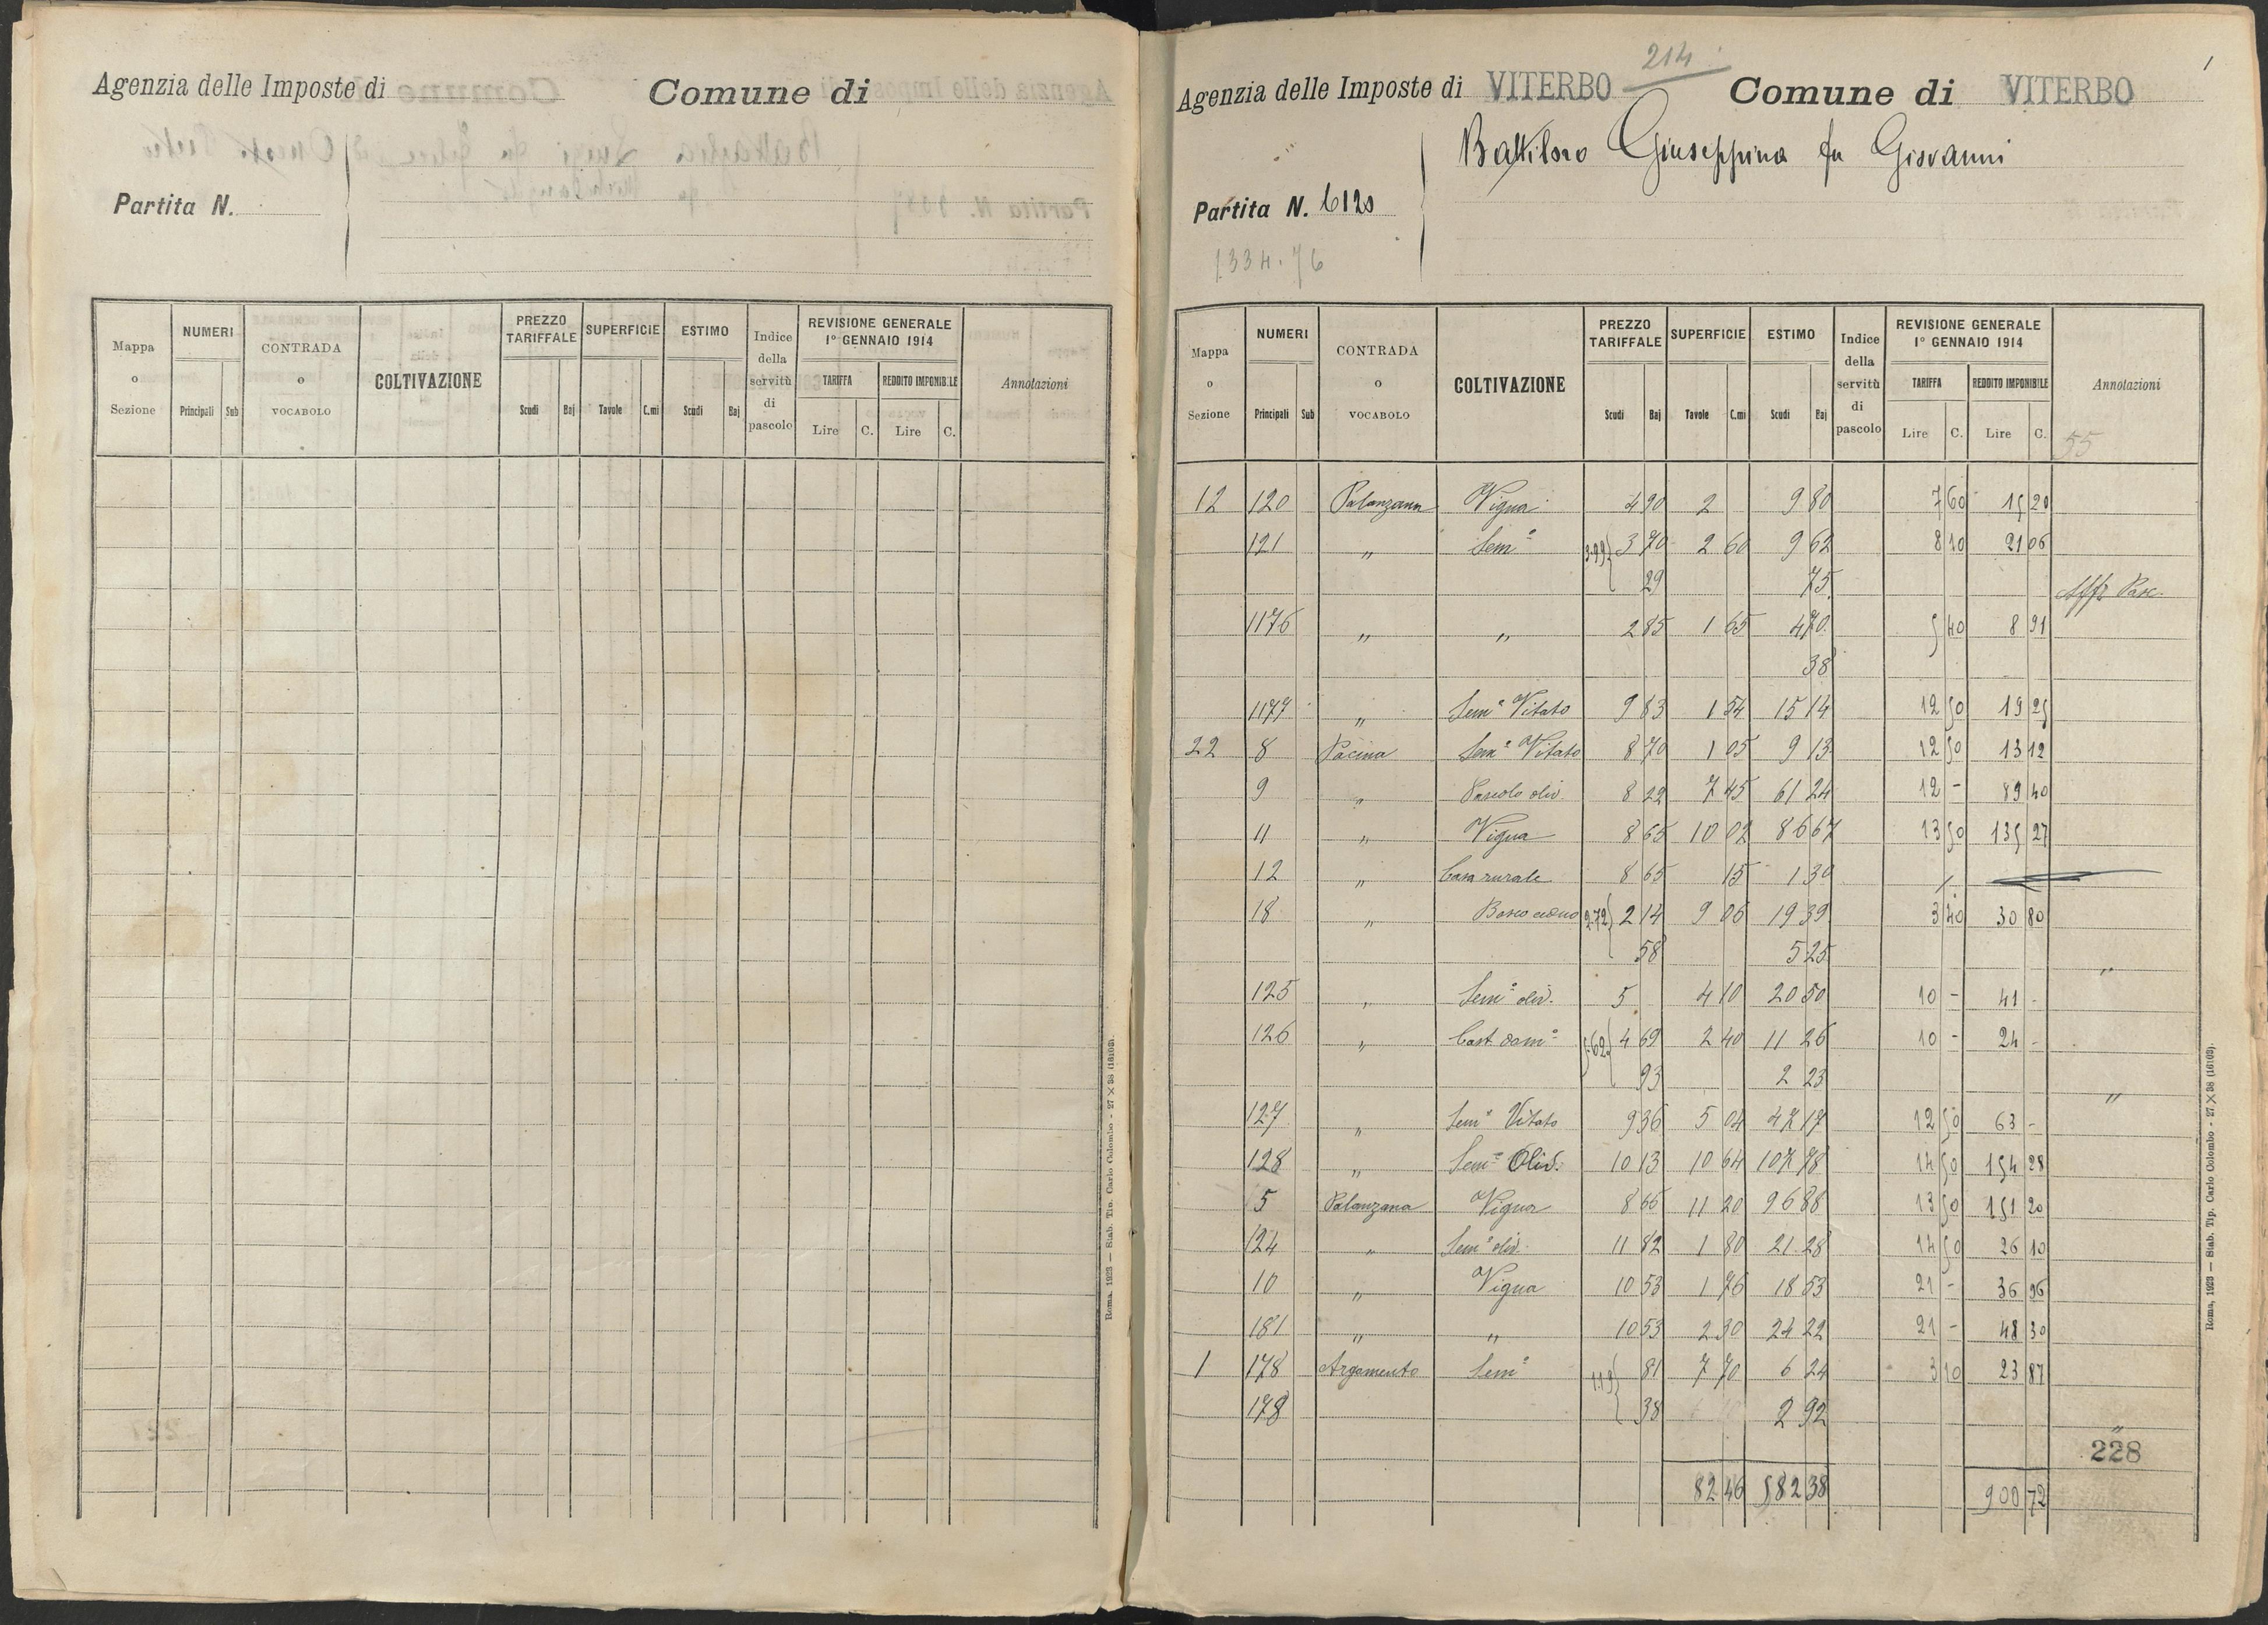 Agenzia delle Imposte di Comune di
Partita N.
Mappa o Sezione NUMERI Principali Sub CONTRADA o VOCABOLO COLTIVAZIONE PREZZO TARIFFALE Scudi Baj SUPERFICIE Tavole C.mi ESTIMO Scudi Baj Indice della servitù di pascolo REVISIONE GENERALE 1° GENNAIO 1914 TARIFFA Lire C. REDDITO IMPONIBILE Lire C. Annotazioni
Roma, 1923 — Stab. Tip. Carlo Colombo - 27 × 38 (16103).
214
Agenzia delle Imposte di VITERBO Comune di VITERBO
1
Battiloro Giuseppina fu Giovanni
Partita N. 6120
1334.76
Mappa o Sezione NUMERI Principali Sub CONTRADA o VOCABOLO COLTIVAZIONE PREZZO TARIFFALE Scudi Baj SUPERFICIE Tavole C.mi ESTIMO Scudi Baj Indice della servitù di pascolo REVISIONE GENERALE 1° GENNAIO 1914 TARIFFA Lire C. REDDITO IMPONIBILE Lire C. Annotazioni
55
12 120 Palanzana Vigna 4 90 2 9 80 7 60 15 20
121 " Sem° 3.99 3 70 2 60 9 62 8 10 21 06
29 75 Affr Pasc.
1176 " " 2 85 1 65 4 70 5 40 8 91
38
1177 " Sem° Vitato 9 83 1 54 15 14 12 50 19 25
22 8 Pacina Sem° Vitato 8 70 1 05 9 13 12 50 13 12
9 " Pascolo oliv. 8 22 7 45 61 24 12 - 89 40
11 " Vigna 8 65 10 02 86 67 13 50 135 27
12 " Casa rurale 8 65 15 1 30
18 " Bosco ceduo 2.72 2 14 9 06 19 39 3 40 30 80
58 5 25 "
125 " Sem° oliv. 5 4 10 20 50 10 - 41 -
126 " Cast. dom° 5.62 4 69 2 40 11 26 10 - 24 -
93 2 23 "
127 " Sem° Vitato 9 36 5 04 47 17 12 50 63 -
128 " Sem° Oliv. 10 13 10 64 107 78 14 50 154 28
5 Palanzana Vigna 8 65 11 20 96 88 13 50 151 20
124 " Sem° oliv. 11 82 1 80 21 28 14 50 26 10
10 " Vigna 10 53 1 76 18 53 21 - 36 96
181 " " 10 53 2 30 24 22 21 - 48 30
1 178 Argomento Sem° 1.19 81 7 70 6 24 3 10 23 87
178 38 2 92 "
228
82 46 582 38 900 72
Roma, 1923 — Stab. Tip. Carlo Colombo - 27 × 38 (16103).